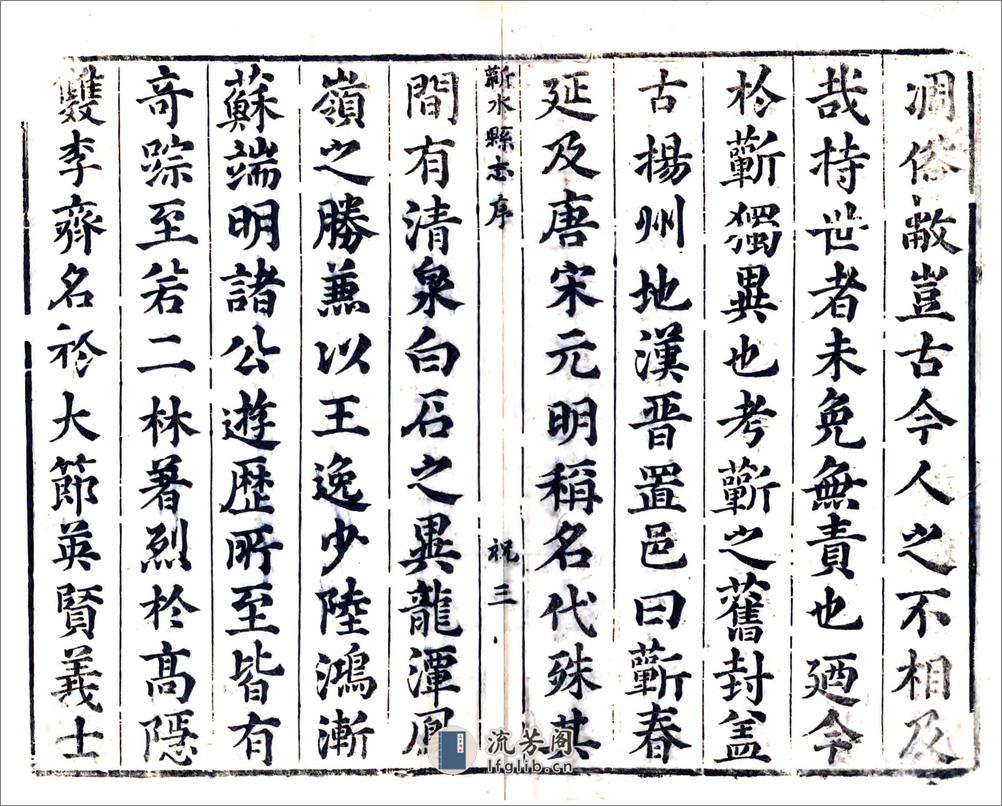 凋俗敝豈古今人之不相及
哉持世者未免無責也廼今
於蘄獨異也考蘄之舊封盖
古揚州地漢晉置邑曰蘄春
延及唐宋元明稱名代殊其
蘄水縣志序 祝 三
間有清泉白石之異龍潭鳳
嶺之勝兼以王逸少陸鴻漸
蘇端明諸公遊歷所至皆有
奇踪至若二林著烈於高隱
雙李齊名於大節英賢義士
流芳阁
lfglib.cn